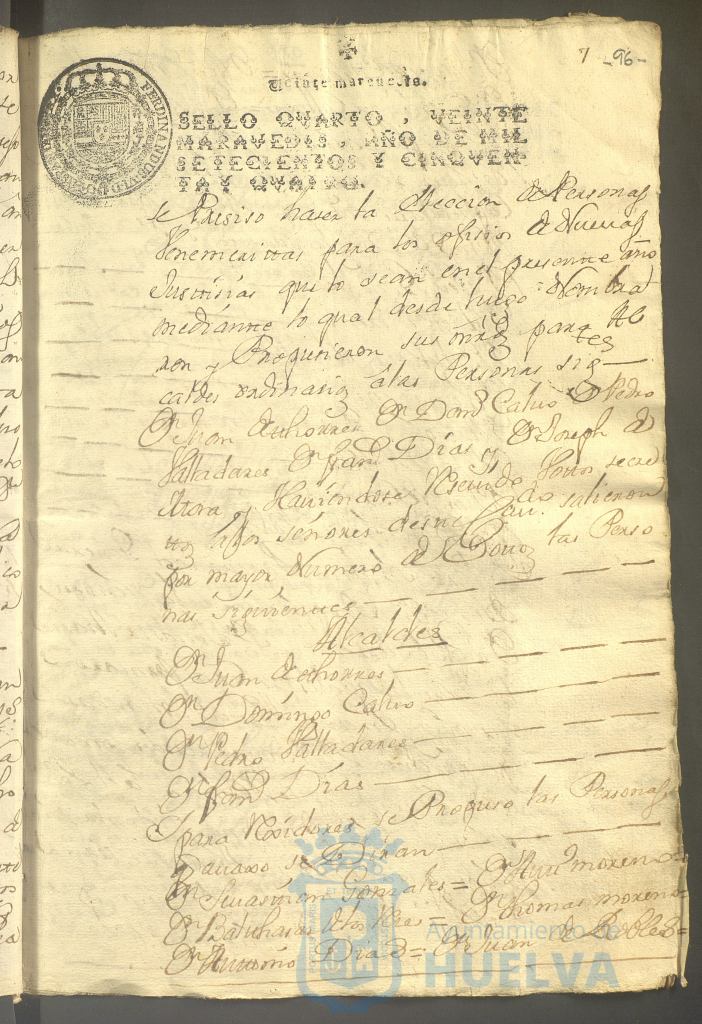 7 -96-
Veinte maravedis.
SELLO QVARTO, VEINTE
MARAVEDIS, AÑO DE MIL
SETECIENTOS Y CINQVEN-
TA Y QVATRO.
se Presiso haser la Eleccion de Personas
Venemerittas para los ofisios de Nuevas
Justtisias que lo sean en el presente año
mediante lo qual desde luego Nombra
ron y Propusieron sus mrds para Al
caldes ordinarios a las Personas sigtes
Dn Juan de Dn Domo Calvo Dn Pedro
Valladares Dn Franco Dias y Dn Joseph de
Mora y Haviendose Resevido Vottos secre
ttos por señores deste Cavdo salieron
por mayor Numero de Votos las Perso
nas siguientes
Alcaldes
Dn Juan de
Dn Domingo Calvo
Dn Pedro Valladares
Dn Franco Dias
Y para Rexidores se Propuso las Personas
que avaxo se Diran
Dn Gonzales = Dn Juan moreno =
Dn Balthasar de los Reies = Dn Thomas moreno =
Dn Antonio Diaz = Dn Juan de Robles =
Ayuntamiento de
HUELVA